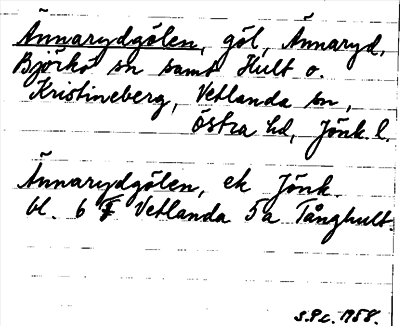 Ännarydgölen, göl, Ännaryd,
Björkö sn samt Hult o.
Kristineberg, Vetlanda sn,
östra hd, Jönk. l.
Ännarydgölen, ek Jönk.
bl. 6 Vetlanda 5a Tånghult.
1958.